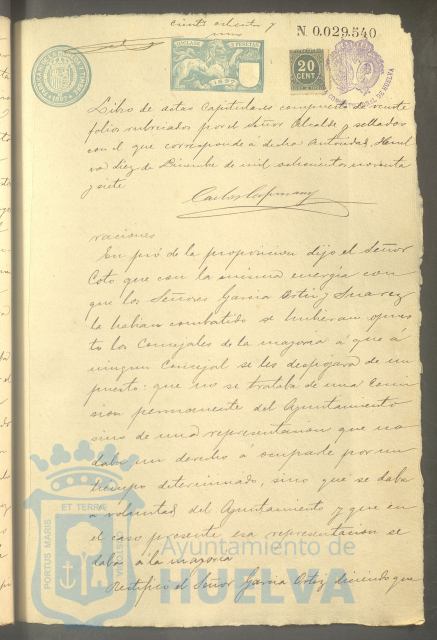 ciento ochenta y
uno
N 0.029.540
CLASE 2 PESETAS
1897
20
CENT
Libro de actas Capitulares compuesto de veinte
folios rubricados por el Señor Alcalde y sellados
con el que corresponde á dicha autoridad. Huel
va diez de Diciembre de mil ochocientos noventa
y siete
raciones
En pró de la proposicion dijo el Señor
Coto que con la misma energía con
que los Señores Garcia Ortiz y Suarez
la habian combatido se hubieran opues
to los Concejales de la mayoria á que á
ningun Concejal se les despojara de un
puesto: que no se trataba de una Comi
sion permanente del Ayuntamiento
sino de una representacion que no
daba un derecho á ocuparle por un
tiempo determinado, sino que se daba
á voluntad del Ayuntamiento y que en
el caso presente esa representacion se
daba á la mayoria
Rectificó el Señor Garcia Ortiz diciendo que
PORTUS MARIS ET TERRÆ CUSTODIA
Ayuntamiento de
HUELVA